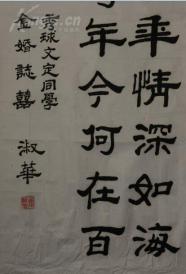 年情深如海
年今何在百
秀球文定同學
金婚誌囍
淑華